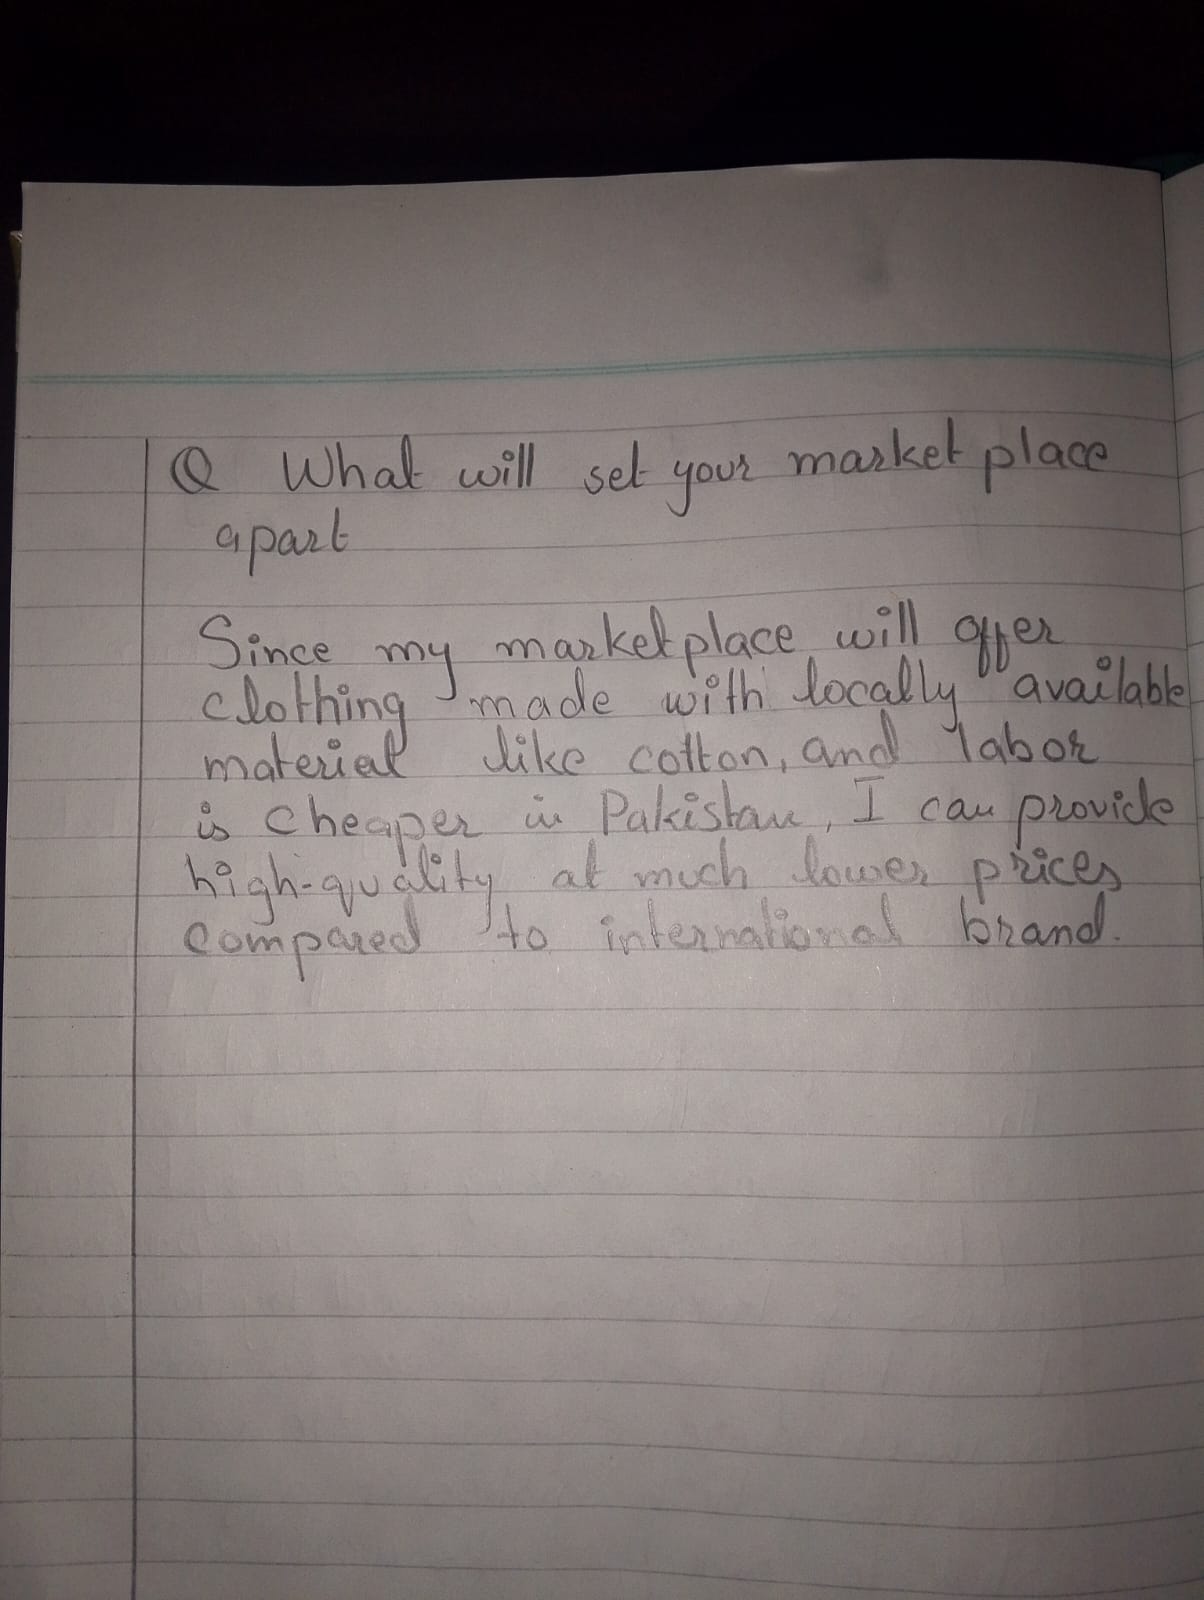 Q What will set your market place
apart
Since my marketplace will offer
clothing made with locally available
material like cotton, and labor
is cheaper in Pakistan, I can provide
high-quality at much lower prices
compared to international brand.